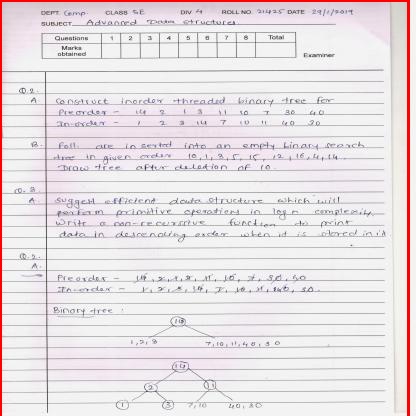 DEPT. Comp. CLASS SE DIV 4 ROLL NO. 21425 DATE 29/1/2019
SUBJECT Advanced Data Structures.
Questions 1 2 3 4 5 6 7 8 Total
Marks obtained
Examiner
Q.2.
A. Construct inorder threaded binary tree for
Preorder - 14 2 1 3 11 10 7 30 40
In-order - 1 2 3 14 7 10 11 40 30
B. Foll. are inserted into an empty binary search
tree in given order 10, 1, 3, 5, 15, 12, 16, 4, 14.
Draw tree after deletion of 10.
Q.3.
A. Suggest efficient data structure which will
perform primitive operations in log n complexity.
Write a non-recurssive function to print
data in descending order when it is stored in it
Q.2.
A.
Preorder - 14, 2, 1, 3, 11, 10, 7, 30, 40
In-order - 1, 2, 3, 14, 7, 10, 11, 40, 30.
Binary tree :
14
1, 2, 3 7, 10, 11, 40, 30
14
2 11
1 3 7, 10 40, 30